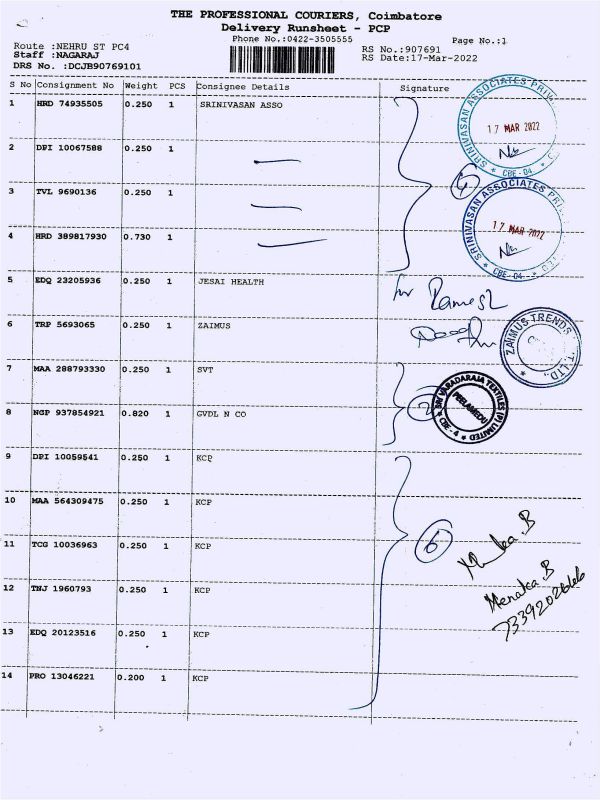 THE PROFESSIONAL COURIERS, Coimbatore
Delivery Runsheet - PCP
Phone No.:0422-3505555
Page No.:1
Route :NEHRU ST PC4
RS No.:907691
Staff :NAGARAJ
RS Date:17-Mar-2022
DRS No. :DCJB90769101
S No Consignment No Weight PCS Consignee Details Signature
1 HRD 74935505 0.250 1 SRINIVASAN ASSO
2 DPI 10067588 0.250 1
3 TVL 9690136 0.250 1
4 HRD 389817930 0.730 1
5 EDQ 23205936 0.250 1 JESAI HEALTH
6 TRP 5693065 0.250 1 ZAIMUS
7 MAA 288793330 0.250 1 SVT
8 NGP 937854921 0.820 1 GVDL N CO
9 DPI 10059541 0.250 1 KCP
10 MAA 564309475 0.250 1 KCP
11 TCG 10036963 0.250 1 KCP
12 TNJ 1960793 0.250 1 KCP
13 EDQ 20123516 0.250 1 KCP
14 PRO 13046221 0.200 1 KCP
SRINIVASAN ASSOCIATES PRIV
17 MAR 2022
* CBE-04 *
4
SRINIVASAN ASSOCIATES PRIV
17 MAR 2022
* CBE-04 *
for Ramesh
ZAIMUS TRENDS
T.LTD.,
2
SRI VARADARAJA TEXTILES (P) LIMITED
PEELAMEDU
* CBE-4 *
6
Menaka.B
7339202666